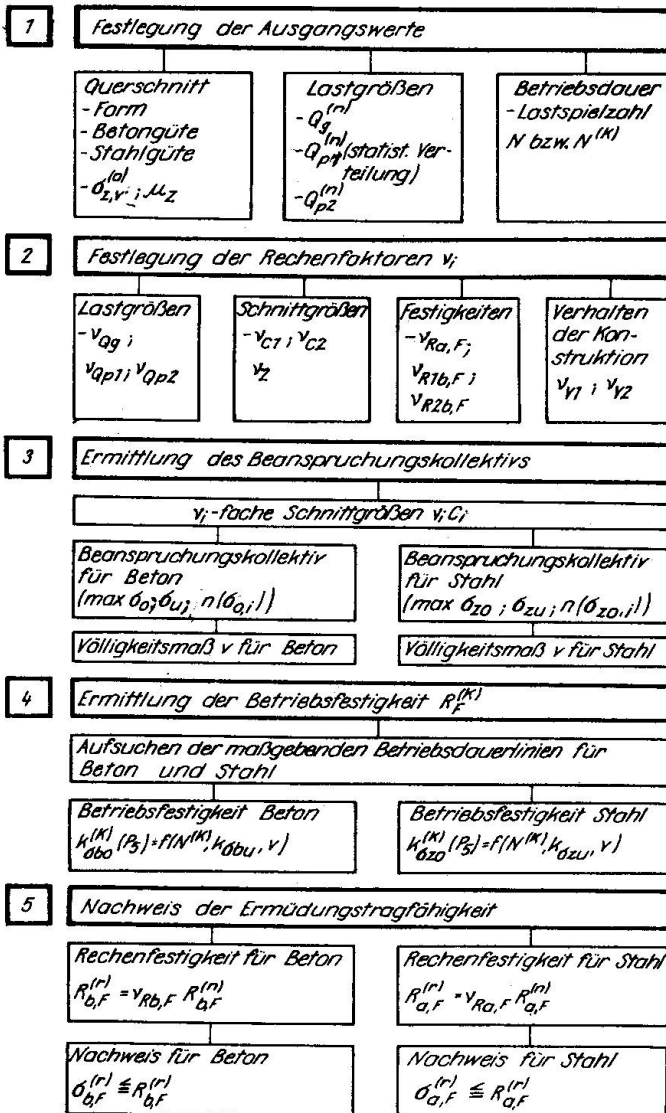 1
Festlegung der Ausgangswerte
Querschnitt
- Form
- Betongüte
- Stahlgüte
- σ_{z,v}^{(o)} ; μ_z
Lastgrößen
- Q_g^{(n)}
- Q_{p1}^{(n)} (statist. Ver-
teilung)
- Q_{p2}^{(n)}
Betriebsdauer
- Lastspielzahl
N bzw. N^{(K)}
2
Festlegung der Rechenfaktoren ν_i
Lastgrößen
- ν_{Qg} ;
ν_{Qp1} ; ν_{Qp2}
Schnittgrößen
- ν_{C1} ; ν_{C2}
ν_Z
Festigkeiten
- ν_{Ra,F} ;
ν_{R1b,F} ;
ν_{R2b,F}
Verhalten
der Kon-
struktion
ν_{γ1} ; ν_{γ2}
3
Ermittlung des Beanspruchungskollektivs
ν_i-fache Schnittgrößen ν_i C_i
Beanspruchungskollektiv
für Beton
(max σ_o ; σ_u ; n(σ_{o,i}))
Beanspruchungskollektiv
für Stahl
(max σ_{zo} ; σ_{zu} ; n(σ_{zo,i}))
Völligkeitsmaß v für Beton
Völligkeitsmaß v für Stahl
4
Ermittlung der Betriebsfestigkeit R_F^{(K)}
Aufsuchen der maßgebenden Betriebsdauerlinien für
Beton und Stahl
Betriebsfestigkeit Beton
k_{σbo}^{(K)} (P_S) = f(N^{(K)}, k_{σbu}, v)
Betriebsfestigkeit Stahl
k_{σzo}^{(K)} (P_S) = f(N^{(K)}, k_{σzu}, v)
5
Nachweis der Ermüdungstragfähigkeit
Rechenfestigkeit für Beton
R_{b,F}^{(r)} = ν_{Rb,F} R_{b,F}^{(n)}
Rechenfestigkeit für Stahl
R_{a,F}^{(r)} = ν_{Ra,F} R_{a,F}^{(n)}
Nachweis für Beton
σ_{b,F}^{(r)} ≦ R_{b,F}^{(r)}
Nachweis für Stahl
σ_{a,F}^{(r)} ≦ R_{a,F}^{(r)}